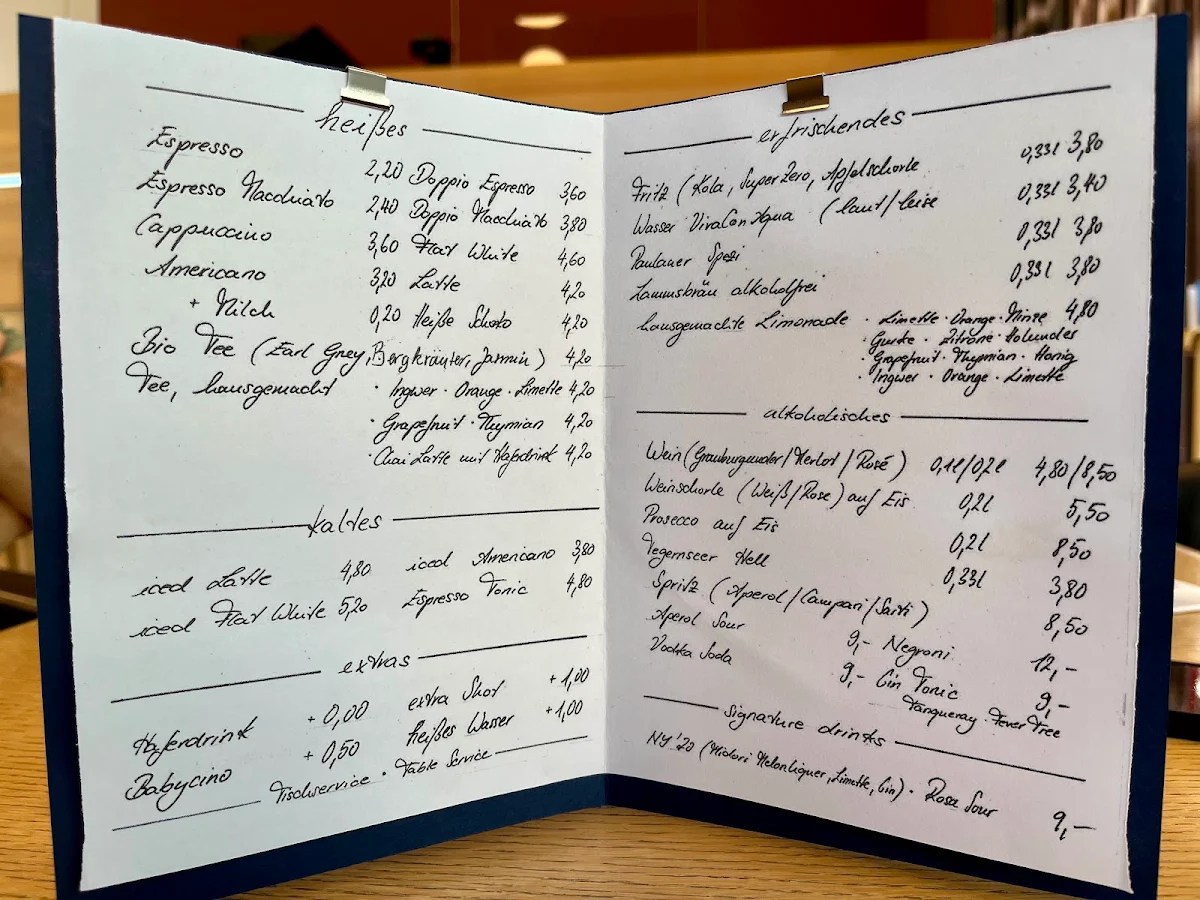 heißes
Espresso 2,20 Doppio Espresso 3,60
Espresso Macchiato 2,40 Doppio Macchiato 3,80
Cappuccino 3,60 Flat White 4,60
Americano 3,20 Latte 4,20
+ Milch 0,20 Heiße Schoko 4,20
Bio Tee (Earl Grey, Bergkräuter, Jasmin) 4,20
Tee, hausgemacht · Ingwer · Orange · Limette 4,20
· Grapefruit · Thymian 4,20
· Chai Latte mit Haferdrink 4,20
kaltes
iced Latte 4,80 iced Americano 3,80
iced Flat White 5,20 Espresso Tonic 4,80
extras
Haferdrink + 0,00 extra Shot + 1,00
Babycino + 0,50 heißes Wasser + 1,00
Tischservice · Table Service
erfrischendes
Fritz (Kola, Super Zero, Apfelschorle 0,33l 3,80
Wasser VivaConAqua (laut/leise 0,33l 3,40
Paulaner Spezi 0,33l 3,80
Lammsbräu alkoholfrei 0,33l 3,80
hausgemachte Limonade · Limette · Orange · Minze 4,80
· Gurke · Zitrone · Holunder
· Grapefruit · Thymian · Honig
· Ingwer · Orange · Limette
alkoholisches
Wein (Grauburgunder/Merlot/Rosé) 0,1l/0,2l 4,80/8,50
Weinschorle (Weiß/Rose) auf Eis 0,2l 5,50
Prosecco auf Eis 0,2l 8,50
Tegernseer Hell 0,33l 3,80
Spritz (Aperol/Campari/Sarti) 8,50
Aperol Sour 9,- Negroni 12,-
Vodka Soda 9,- Gin Tonic 9,-
Tanqueray · Fever Tree
signature drinks
NY '20 (Midori Melonliquer, Limette, Gin) · Rosa Sour 9,-